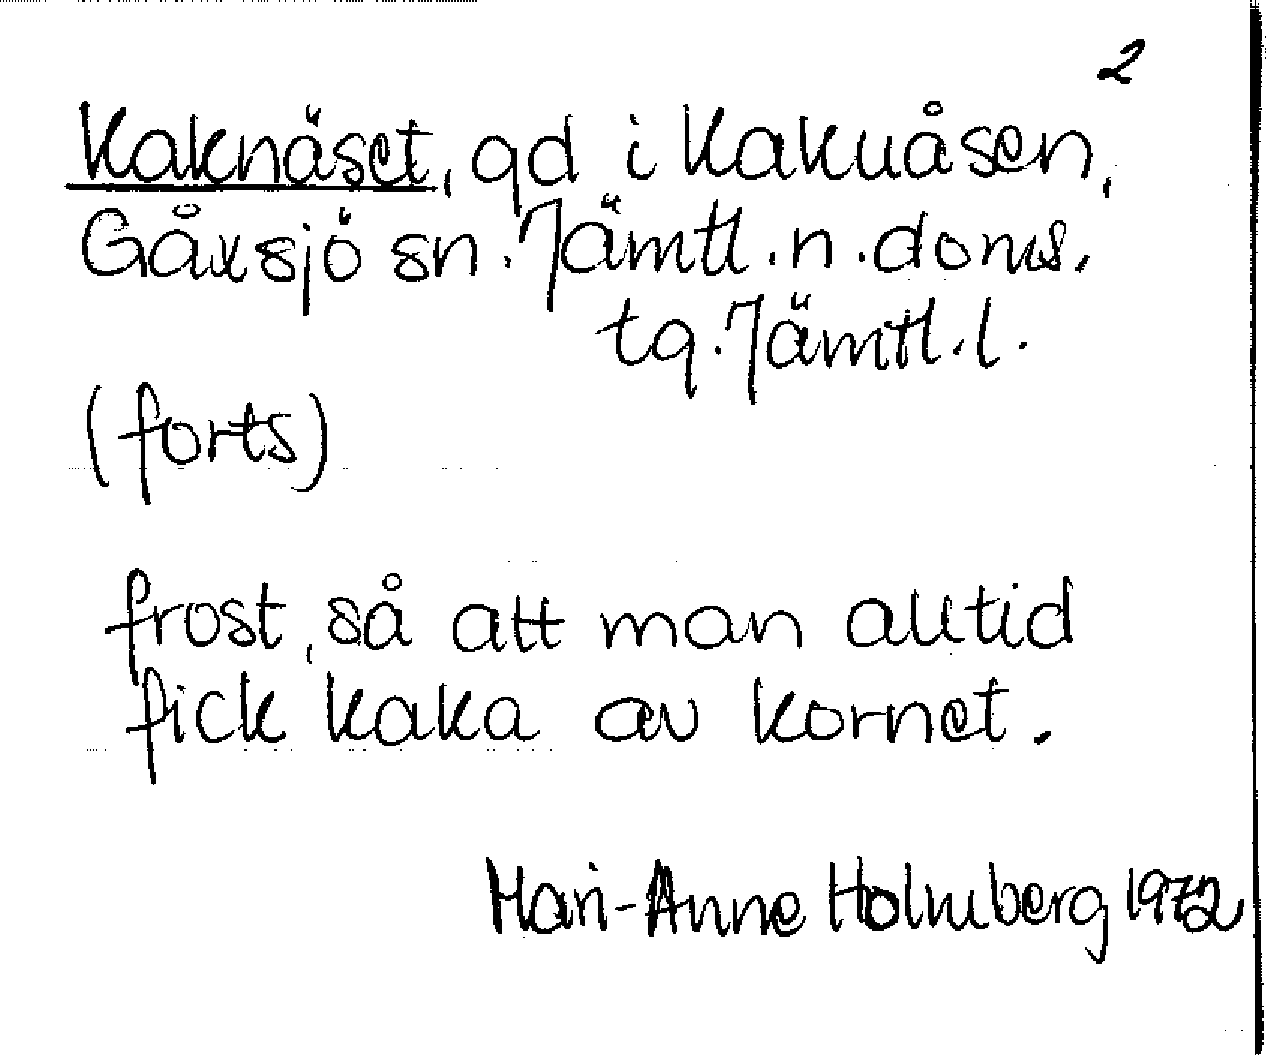 2
Kaknäset, gd i Kakuåsen,
Gåxsjö sn. Jämtl. n. doms.
tg. Jämtl. l.
(forts)
frost, så att man alltid
fick kaka av kornet.
Mari-Anne Holmberg 1972